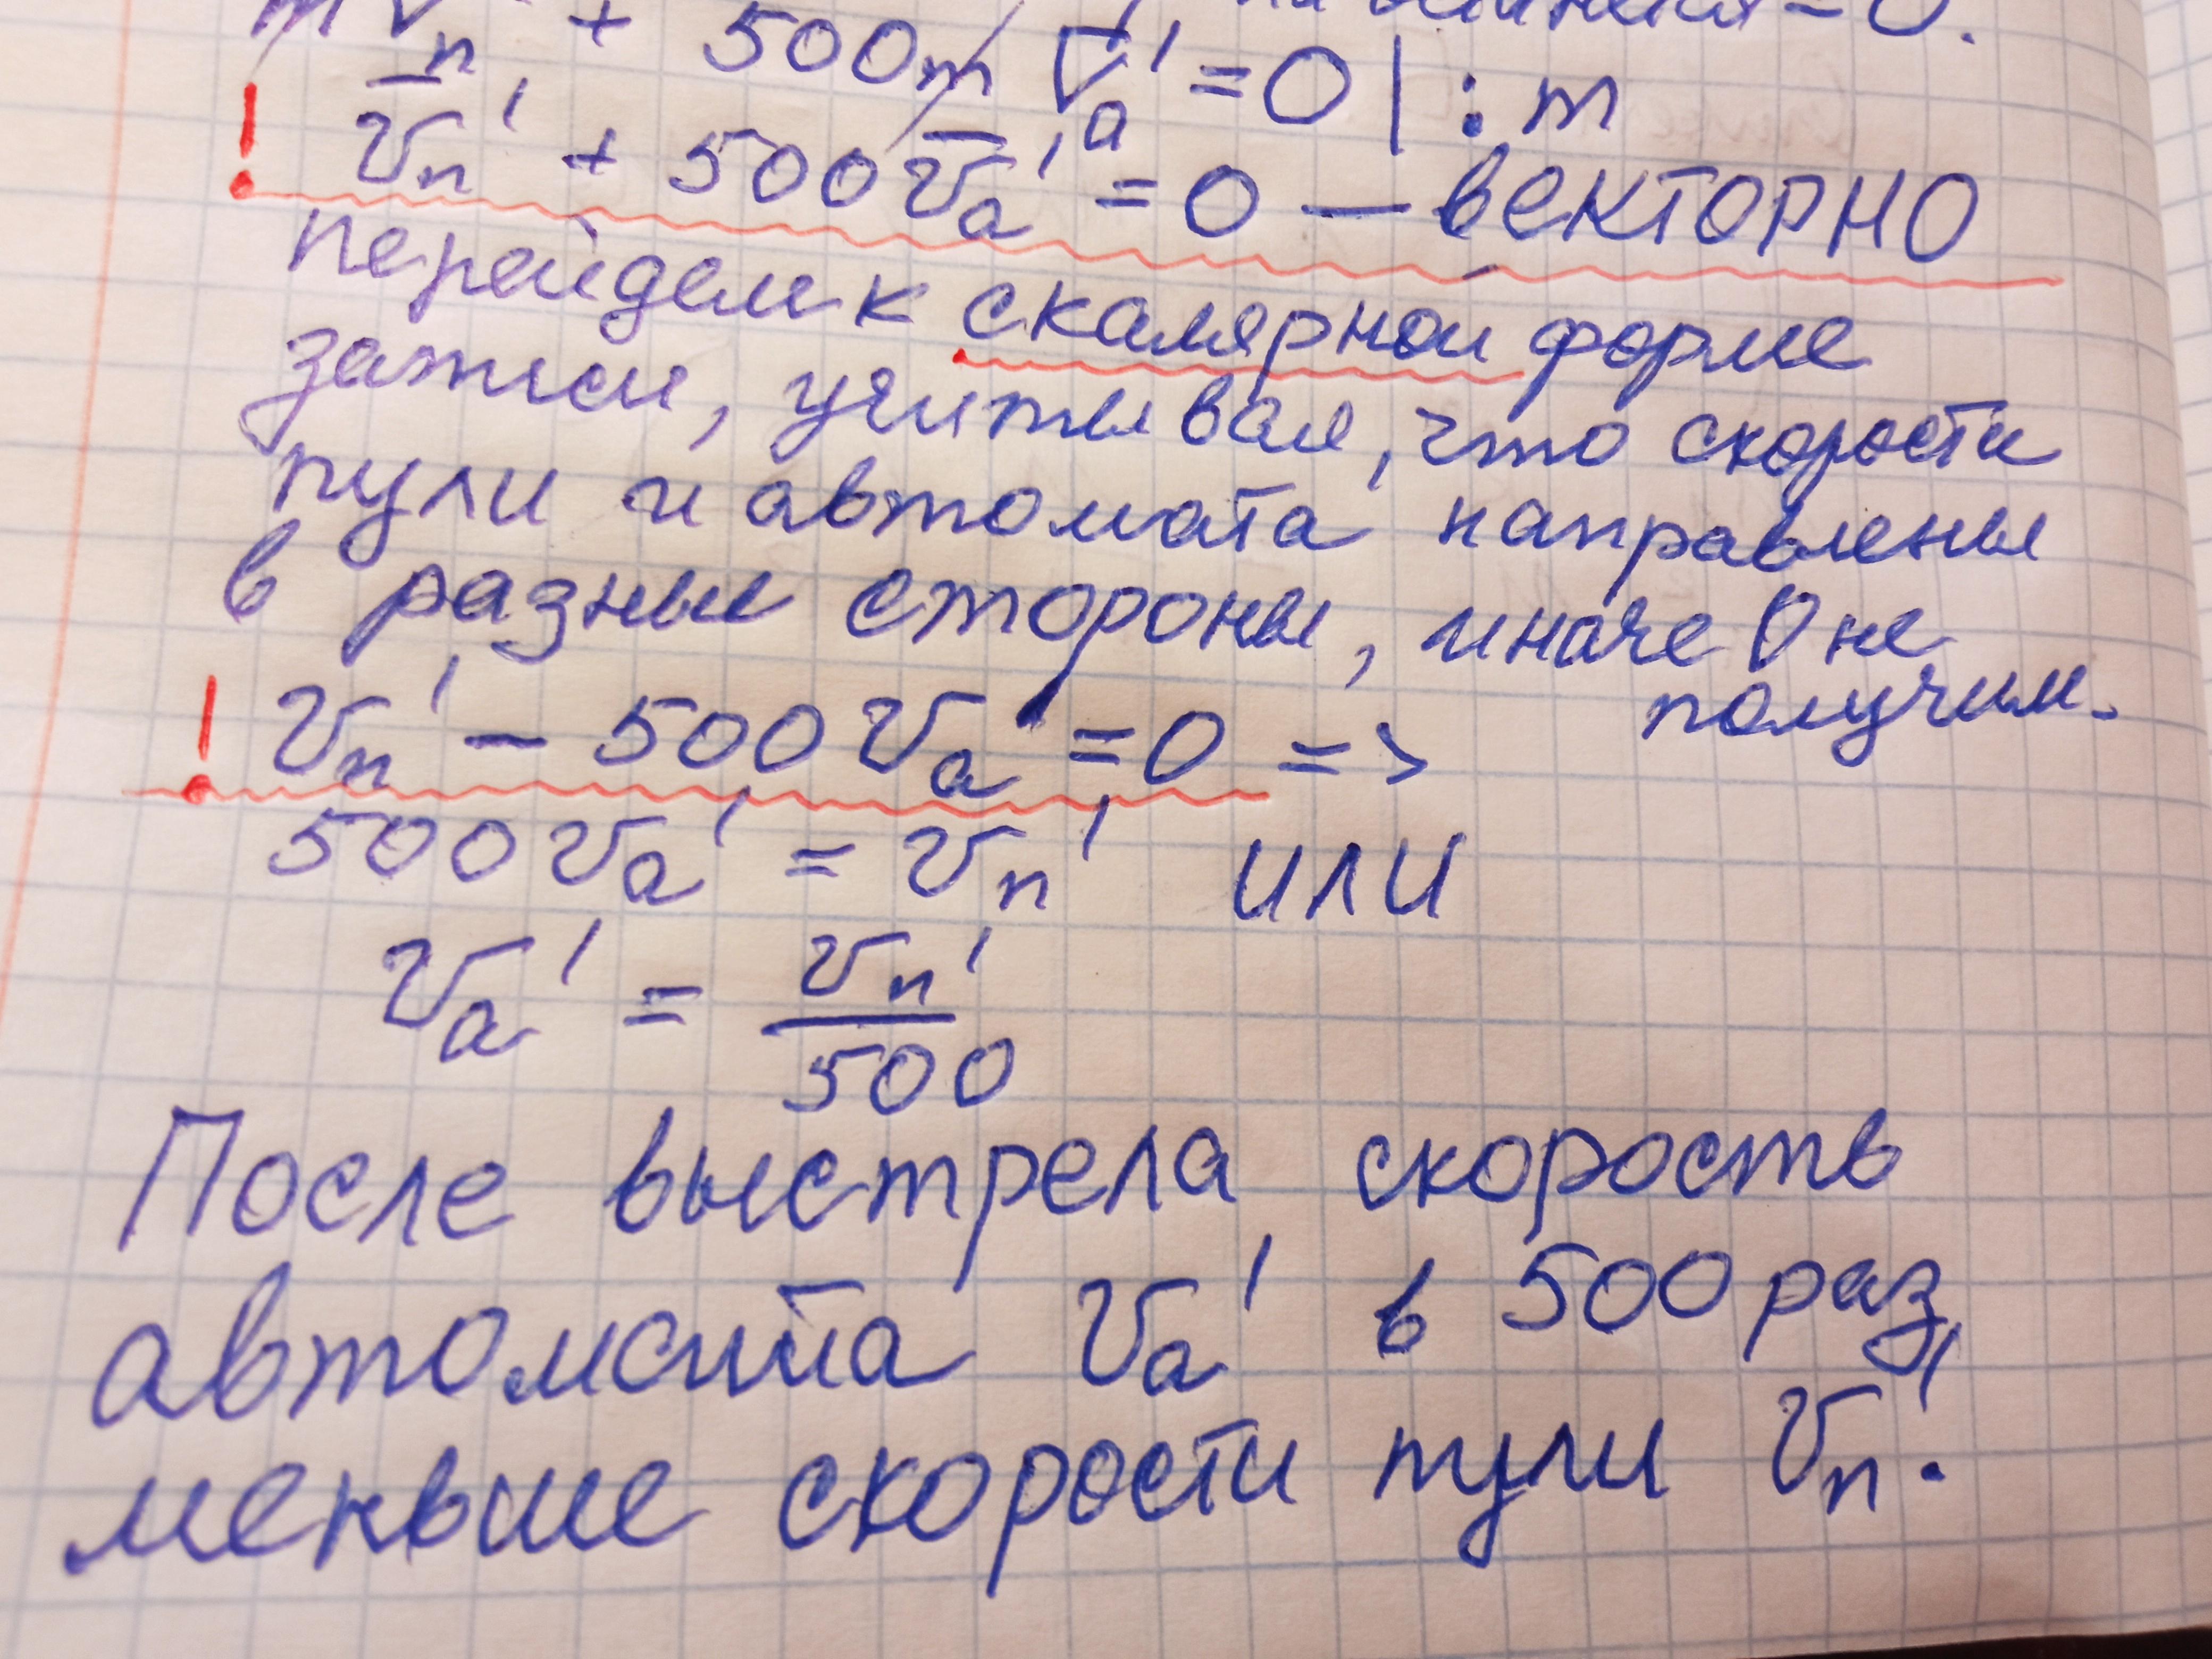 mV̅п' + 500m V̅а' = 0 | : m
! v̅п' + 500v̅а' = 0 — векторно
перейдем к скалярной форме
записи, учитывая, что скорости
пули и автомата направлены
в разные стороны, иначе 0 не
получим.
! vп' − 500vа' = 0 =>
500vа' = vп' или
vа' = vп'/500
После выстрела скорость
автомата vа' в 500 раз
меньше скорости пули vп'.